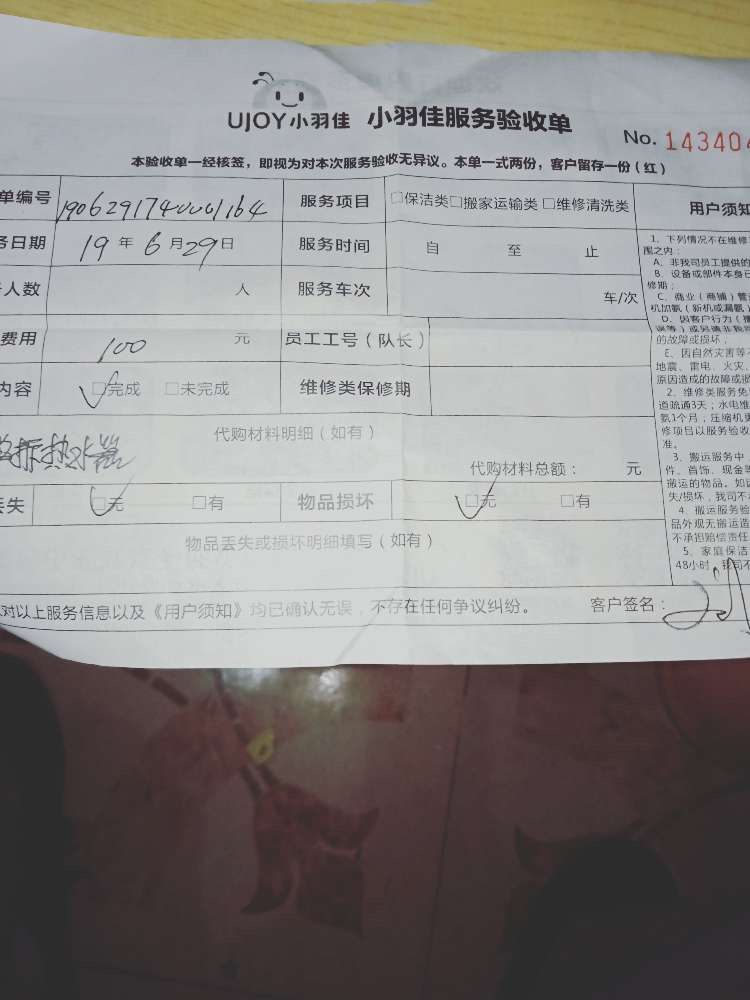 UJOY小羽佳 小羽佳服务验收单
No. 143404
本验收单一经核签，即视为对本次服务验收无异议。本单一式两份，客户留存一份（红）
单编号 服务项目 □保洁类□搬家运输类 □维修清洗类 用户须知
日期 19 年 6 月 29 日 服务时间 自 至 止
人数 人 服务车次 车/次
费用 100 元 员工工号（队长）
内容 □完成 □未完成 维修类保修期
代购材料明细（如有）
热水器
代购材料总额： 元
丢失 □无 □有 物品损坏 □无 □有
物品丢失或损坏明细填写（如有）
对以上服务信息以及《用户须知》均已确认无误，不存在任何争议纠纷。 客户签名：
1、下列情况不在维修
围之内：
A、非我司员工提供的
B、设备或部件本身已
修期；
C、商业（商铺）管
机加氨（新机或漏氨）
D、因客户行为（
的故障或损坏，
E、因自然灾害等不
地震、雷电、火灾、
原因造成的故障或损
2、维修类服务免
道疏通3天；水电维
氨1个月，压缩机更
修项目以服务验收
准。
3、搬运服务中，
件、首饰、现金等
搬运的物品。如
失/损坏，我司不
4、搬运服务验
品外观无搬运造
不承担赔偿责任
5、家庭保洁
48小时，